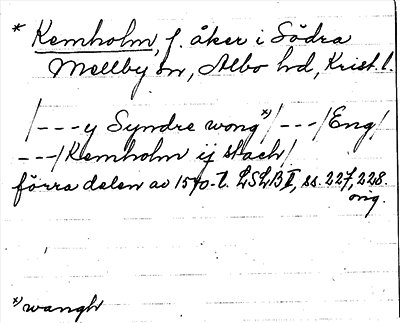 * Kemholm, f. åker i Södra
Mellby sn, Albo hd, Krist. l.
/---y Syndre wong*)/---/Eng/
---/Kemholm ij stach/
förra delen av 1570-t. LSLB II, ss. 227, 228.
orig.
*) wangh